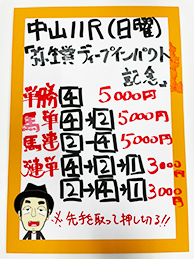 中山11R(日曜)
「弥生賞ディープインパクト
記念」
単勝 4 5000円
馬単 4→2 5000円
馬連 2-4 5000円
3連単 4→2→1 3000円
2→4→1 3000円
※先手を取って押し切る!!